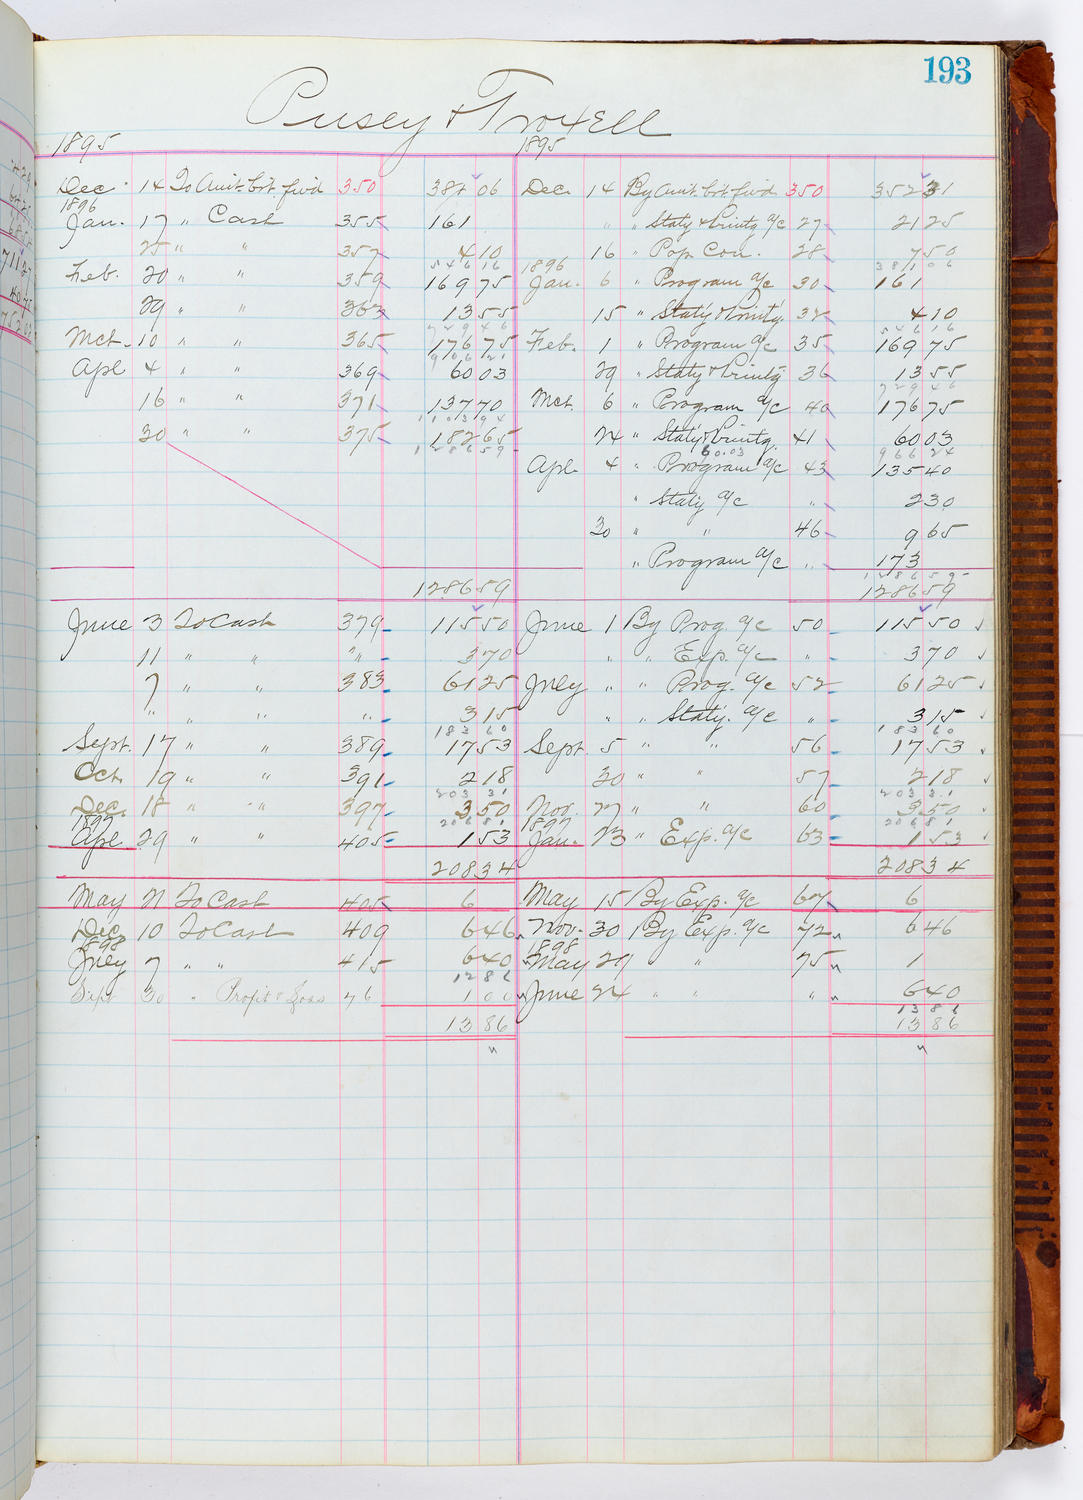 193
Pusey & Troxell
1895 1895
Dec. 14 To Amt. brt. fwd 350 387 06 Dec. 14 By Amt. brt. fwd 350 352 31
1896
Jan. 17 " Cash 355 161 " " Staty & Printg a/c 27 21 25
25 " " 357 4 10 16 " Pop. Con. 28 7 50
546 16 1896 381 06
Feb. 20 " " 359 169 75 Jan. 6 " Program a/c 30 161
29 " " 363 13 55 15 " Staty & Printg. 32 4 10
729 46 546 16
Mct. 10 " " 365 176 75 Feb. 1 " Program a/c 35 169 75
906 21
Apl 4 " " 369 60 03 29 " Staty & Printg 36 13 55
729 46
16 " " 371 137 70 Mct. 6 " Program a/c 40 176 75
1103 94
30 " " 375 182 65 24 " Staty & Printg. 41 60 03
1286 59 60.03 966 24
Apl. 4 " Program a/c 43 135 40
" Staty a/c " 2 30
30 " " 46 9 65
" Program a/c " 173
1286 59
1286 59 1286 59
June 3 To Cash 379 115 50 June 1 By Prog. a/c 50 115 50
11 " " " 3 70 " " Exp. a/c " 3 70
7 " " 383 61 25 July " " Prog. a/c 52 61 25
" " " " 3 15 " " Staty. a/c " 3 15
183 60 183 60
Sept. 17 " " 389 17 53 Sept. 5 " " 56 17 53
Oct. 19 " " 391 2 18 30 " " 57 2 18
203 31 203 31
Dec. 18 " " 397 3 50 Nov. 27 " " 60 3 50
1897 206 81 1897 206 81
Apl. 29 " " 405 1 53 Jan. 23 " Exp. a/c 63 1 53
208 34 208 34
May 21 To Cash 405 6 May 15 By Exp. a/c 67 6
Dec 10 To Cash 409 6 46 Nov. 30 By Exp. a/c 72 6 46
1898 1898
July 7 " " 415 6 40 May 21 " 75 1
12 86
Sept 30 " Profit & Loss 76 1 00 June 24 " " " 6 40
13 86
13 86 13 86